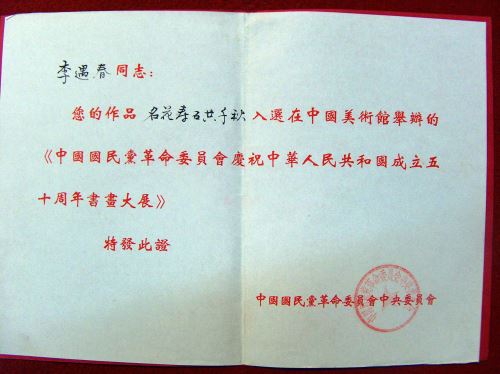 李遇春同志：
您的作品 名花寿石共千秋 入選在中國美術館舉辦的
《中國國民黨革命委員會慶祝中華人民共和國成立五
十周年書畫大展》
特發此證
中國國民黨革命委員會中央委員會